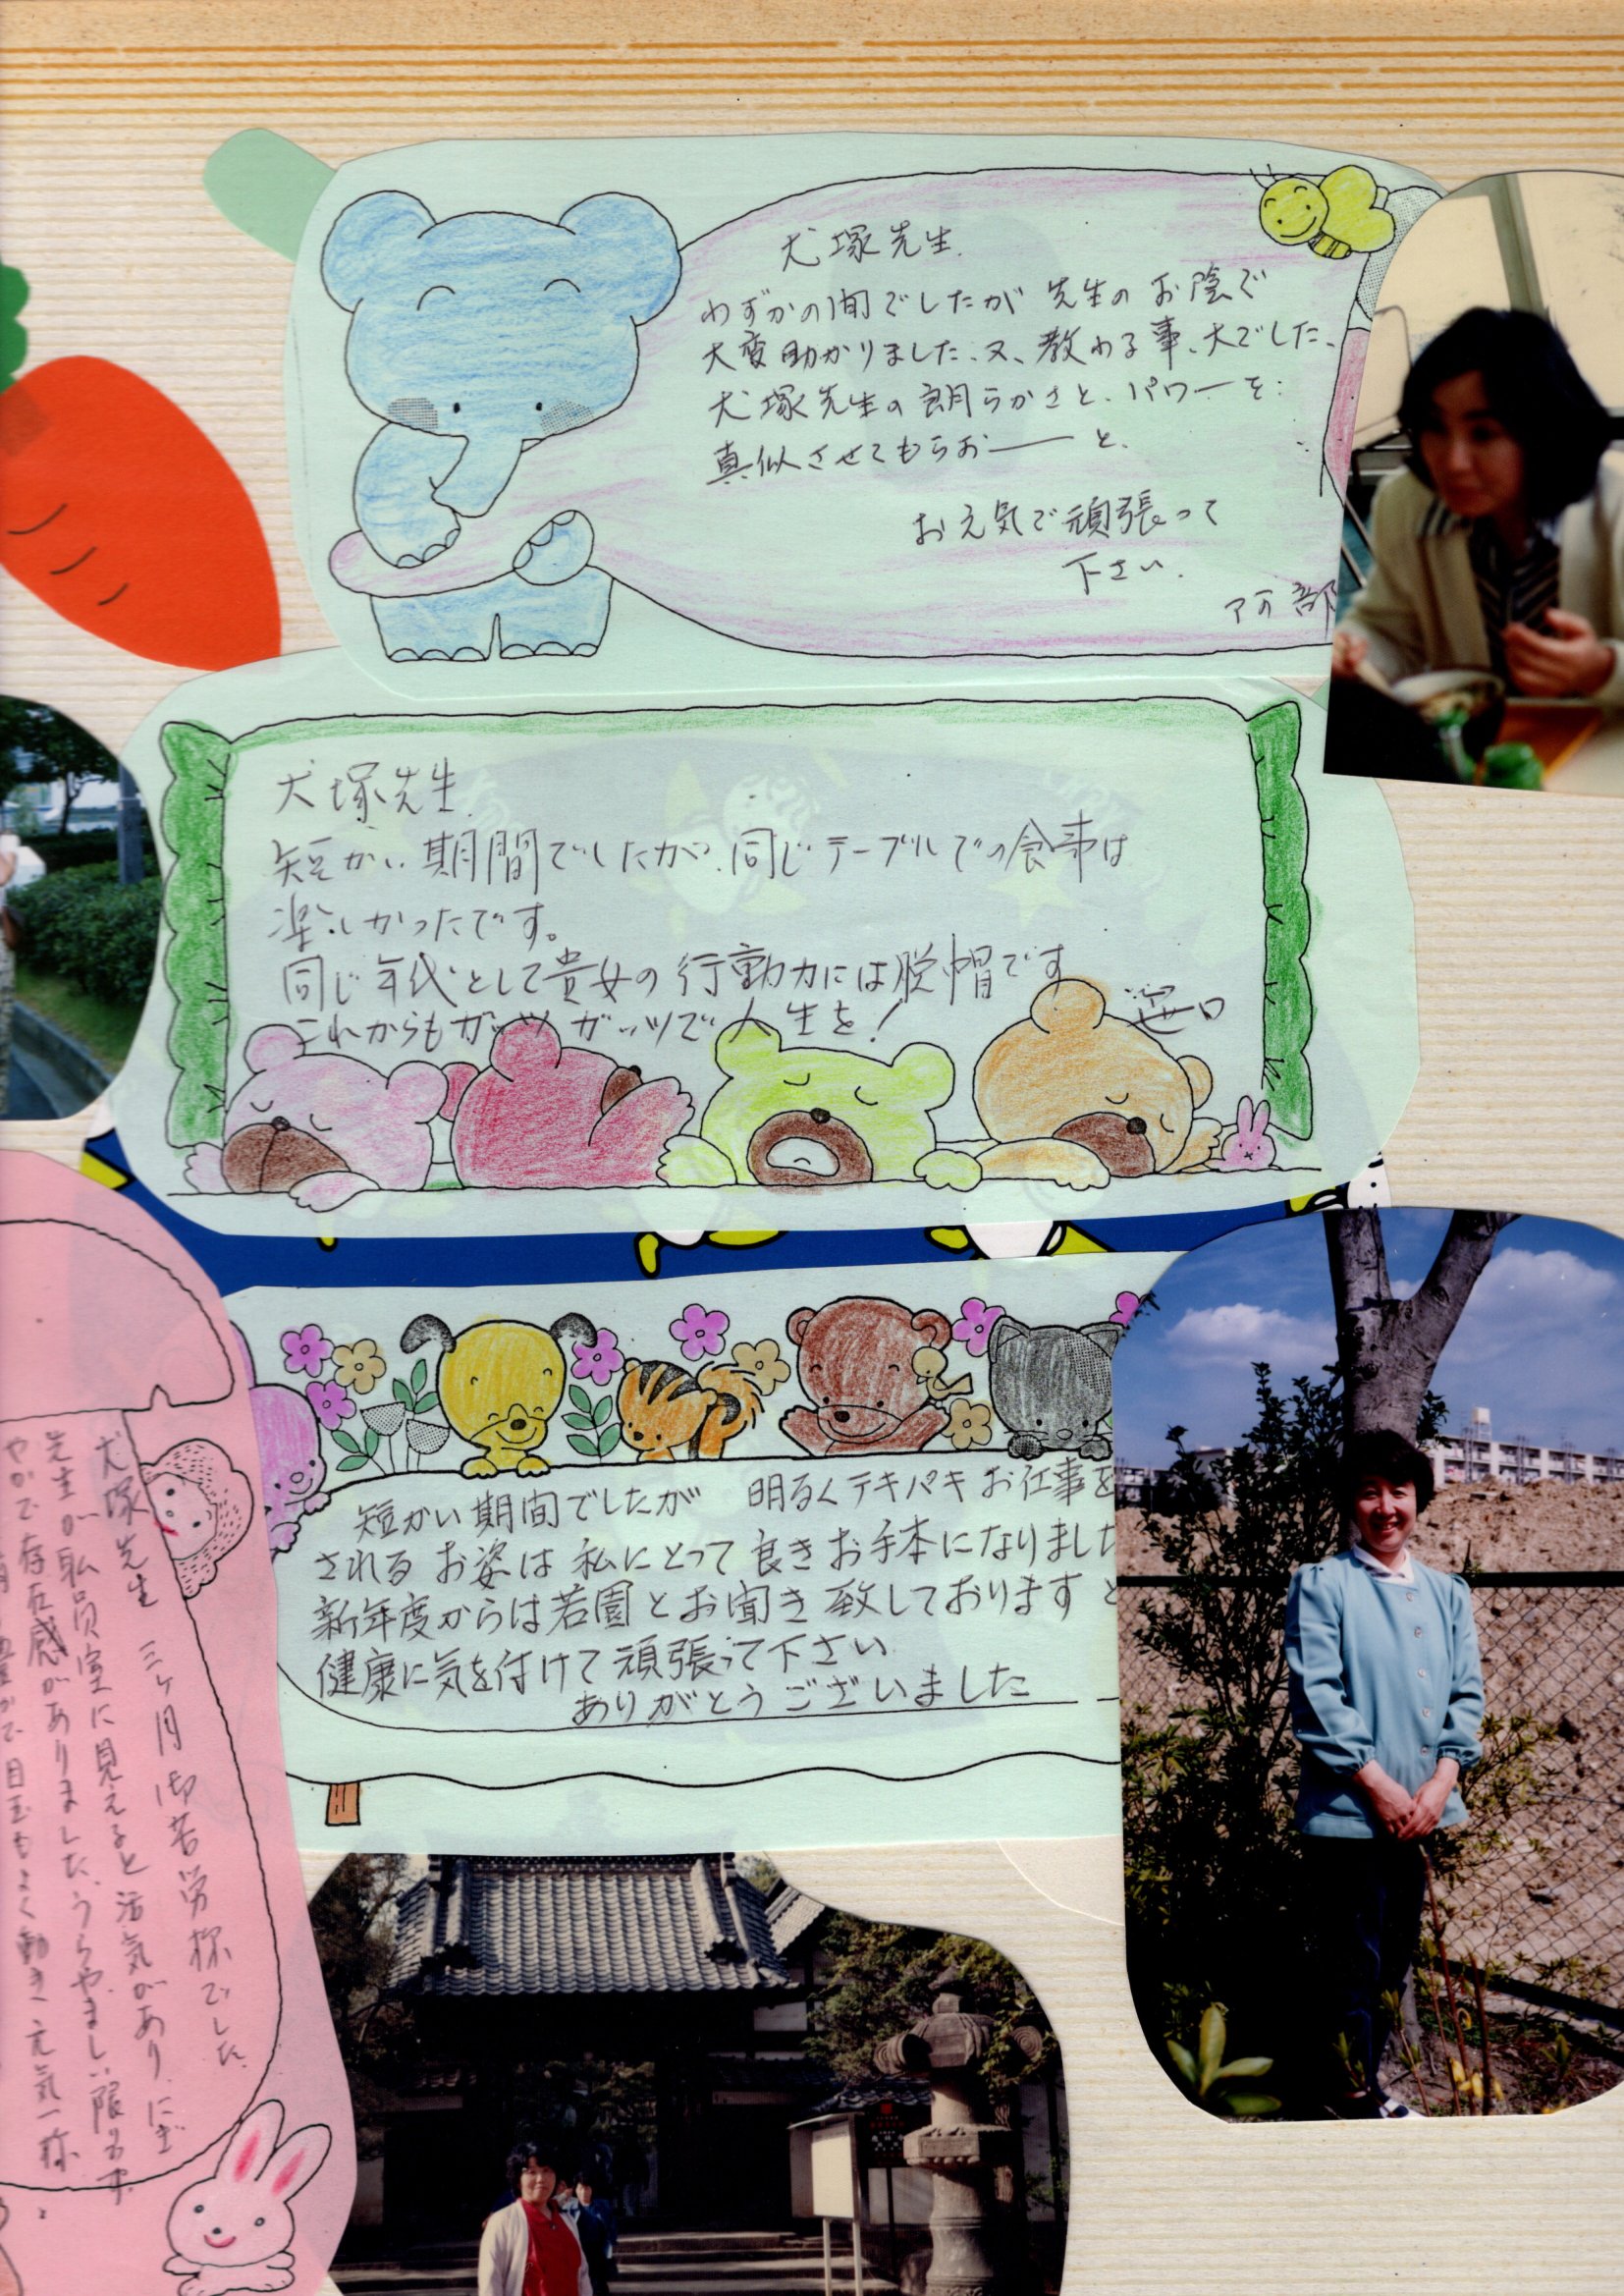 犬塚先生.
わずかの間でしたが 先生のお陰で
大変助かりました、又、教わる事、大でした、
犬塚先生の朗らかさと、パワーを:
真似させてもらお——と、
お元気で頑張って
下さい.
阿部
犬塚先生
短かい期間でしたが、同じテーブルでの食事は
楽しかったです。
同じ年代として貴女の行動力には脱帽です
これからもガッツガッツで人生を!
笹口
短かい期間でしたが 明るくテキパキお仕事を
されるお姿は私にとって良きお手本になりました
新年度からは若園とお聞き致しております と
健康に気を付けて頑張って下さい
ありがとうございました
犬塚先生 三ヶ月御苦労様でした.
先生が職員室に見えると活気があり、にぎ
やかで存在感がありました、うらやましい限りです
目玉もよく動き元気一杯